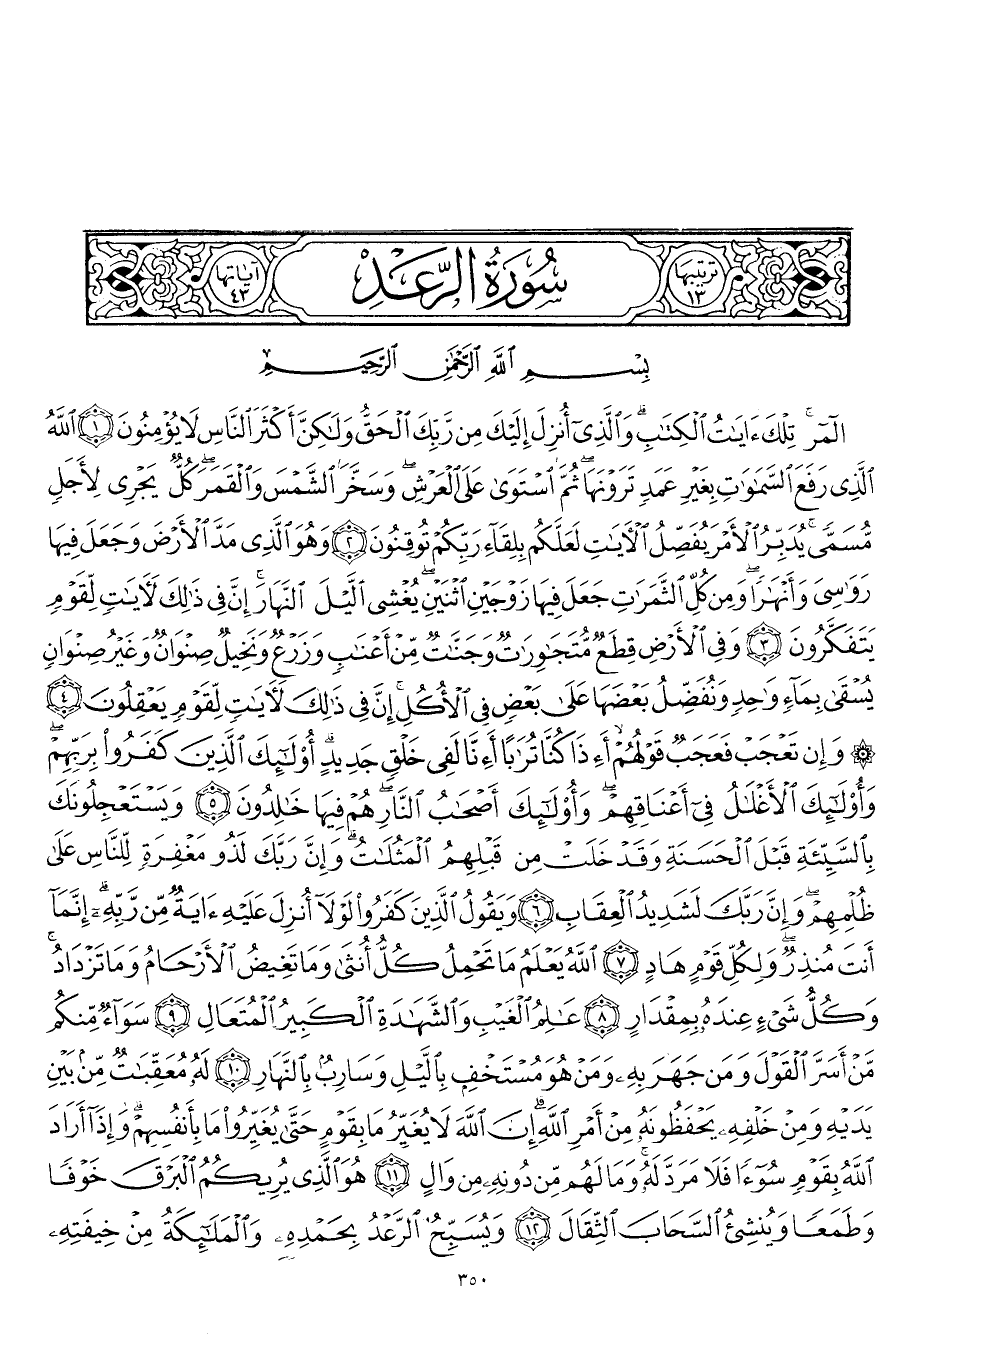 ترتيبها ١٣ سُورَةُ الرَّعْدِ آياتها ٤٣
بِسْمِ ٱللَّهِ ٱلرَّحْمَٰنِ ٱلرَّحِيمِ
الٓمٓر ۚ تِلْكَ ءَايَٰتُ ٱلْكِتَٰبِ ۗ وَٱلَّذِىٓ أُنزِلَ إِلَيْكَ مِن رَّبِّكَ ٱلْحَقُّ وَلَٰكِنَّ أَكْثَرَ ٱلنَّاسِ لَا يُؤْمِنُونَ ١ ٱللَّهُ
ٱلَّذِى رَفَعَ ٱلسَّمَٰوَٰتِ بِغَيْرِ عَمَدٍ تَرَوْنَهَا ۖ ثُمَّ ٱسْتَوَىٰ عَلَى ٱلْعَرْشِ ۖ وَسَخَّرَ ٱلشَّمْسَ وَٱلْقَمَرَ ۖ كُلٌّ يَجْرِى لِأَجَلٍ
مُّسَمًّى ۚ يُدَبِّرُ ٱلْأَمْرَ يُفَصِّلُ ٱلْءَايَٰتِ لَعَلَّكُم بِلِقَآءِ رَبِّكُمْ تُوقِنُونَ ٢ وَهُوَ ٱلَّذِى مَدَّ ٱلْأَرْضَ وَجَعَلَ فِيهَا
رَوَٰسِىَ وَأَنْهَٰرًا ۖ وَمِن كُلِّ ٱلثَّمَرَٰتِ جَعَلَ فِيهَا زَوْجَيْنِ ٱثْنَيْنِ ۖ يُغْشِى ٱلَّيْلَ ٱلنَّهَارَ ۚ إِنَّ فِى ذَٰلِكَ لَءَايَٰتٍ لِّقَوْمٍ
يَتَفَكَّرُونَ ٣ وَفِى ٱلْأَرْضِ قِطَعٌ مُّتَجَٰوِرَٰتٌ وَجَنَّٰتٌ مِّنْ أَعْنَٰبٍ وَزَرْعٌ وَنَخِيلٌ صِنْوَانٌ وَغَيْرُ صِنْوَانٍ
يُسْقَىٰ بِمَآءٍ وَٰحِدٍ وَنُفَضِّلُ بَعْضَهَا عَلَىٰ بَعْضٍ فِى ٱلْأُكُلِ ۚ إِنَّ فِى ذَٰلِكَ لَءَايَٰتٍ لِّقَوْمٍ يَعْقِلُونَ ٤
۞ وَإِن تَعْجَبْ فَعَجَبٌ قَوْلُهُمْ أَءِذَا كُنَّا تُرَٰبًا أَءِنَّا لَفِى خَلْقٍ جَدِيدٍ ۗ أُو۟لَٰٓئِكَ ٱلَّذِينَ كَفَرُوا۟ بِرَبِّهِمْ ۖ
وَأُو۟لَٰٓئِكَ ٱلْأَغْلَٰلُ فِىٓ أَعْنَاقِهِمْ ۖ وَأُو۟لَٰٓئِكَ أَصْحَٰبُ ٱلنَّارِ ۖ هُمْ فِيهَا خَٰلِدُونَ ٥ وَيَسْتَعْجِلُونَكَ
بِٱلسَّيِّئَةِ قَبْلَ ٱلْحَسَنَةِ وَقَدْ خَلَتْ مِن قَبْلِهِمُ ٱلْمَثُلَٰتُ ۗ وَإِنَّ رَبَّكَ لَذُو مَغْفِرَةٍ لِّلنَّاسِ عَلَىٰ
ظُلْمِهِمْ ۖ وَإِنَّ رَبَّكَ لَشَدِيدُ ٱلْعِقَابِ ٦ وَيَقُولُ ٱلَّذِينَ كَفَرُوا۟ لَوْلَآ أُنزِلَ عَلَيْهِ ءَايَةٌ مِّن رَّبِّهِۦٓ ۗ إِنَّمَآ
أَنتَ مُنذِرٌ ۖ وَلِكُلِّ قَوْمٍ هَادٍ ٧ ٱللَّهُ يَعْلَمُ مَا تَحْمِلُ كُلُّ أُنثَىٰ وَمَا تَغِيضُ ٱلْأَرْحَامُ وَمَا تَزْدَادُ ۖ
وَكُلُّ شَىْءٍ عِندَهُۥ بِمِقْدَارٍ ٨ عَٰلِمُ ٱلْغَيْبِ وَٱلشَّهَٰدَةِ ٱلْكَبِيرُ ٱلْمُتَعَالِ ٩ سَوَآءٌ مِّنكُم
مَّنْ أَسَرَّ ٱلْقَوْلَ وَمَن جَهَرَ بِهِۦ وَمَنْ هُوَ مُسْتَخْفٍۭ بِٱلَّيْلِ وَسَارِبٌۢ بِٱلنَّهَارِ ١٠ لَهُۥ مُعَقِّبَٰتٌ مِّنۢ بَيْنِ
يَدَيْهِ وَمِنْ خَلْفِهِۦ يَحْفَظُونَهُۥ مِنْ أَمْرِ ٱللَّهِ ۗ إِنَّ ٱللَّهَ لَا يُغَيِّرُ مَا بِقَوْمٍ حَتَّىٰ يُغَيِّرُوا۟ مَا بِأَنفُسِهِمْ ۗ وَإِذَآ أَرَادَ
ٱللَّهُ بِقَوْمٍ سُوٓءًا فَلَا مَرَدَّ لَهُۥ ۚ وَمَا لَهُم مِّن دُونِهِۦ مِن وَالٍ ١١ هُوَ ٱلَّذِى يُرِيكُمُ ٱلْبَرْقَ خَوْفًا
وَطَمَعًا وَيُنشِئُ ٱلسَّحَابَ ٱلثِّقَالَ ١٢ وَيُسَبِّحُ ٱلرَّعْدُ بِحَمْدِهِۦ وَٱلْمَلَٰٓئِكَةُ مِنْ خِيفَتِهِۦ
٣٥٠